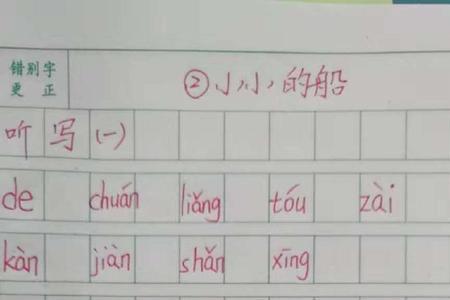 错别字
更 正
②小小的船
听写(一)
de chuán liǎng tóu zài
kàn jiàn shǎn xīng